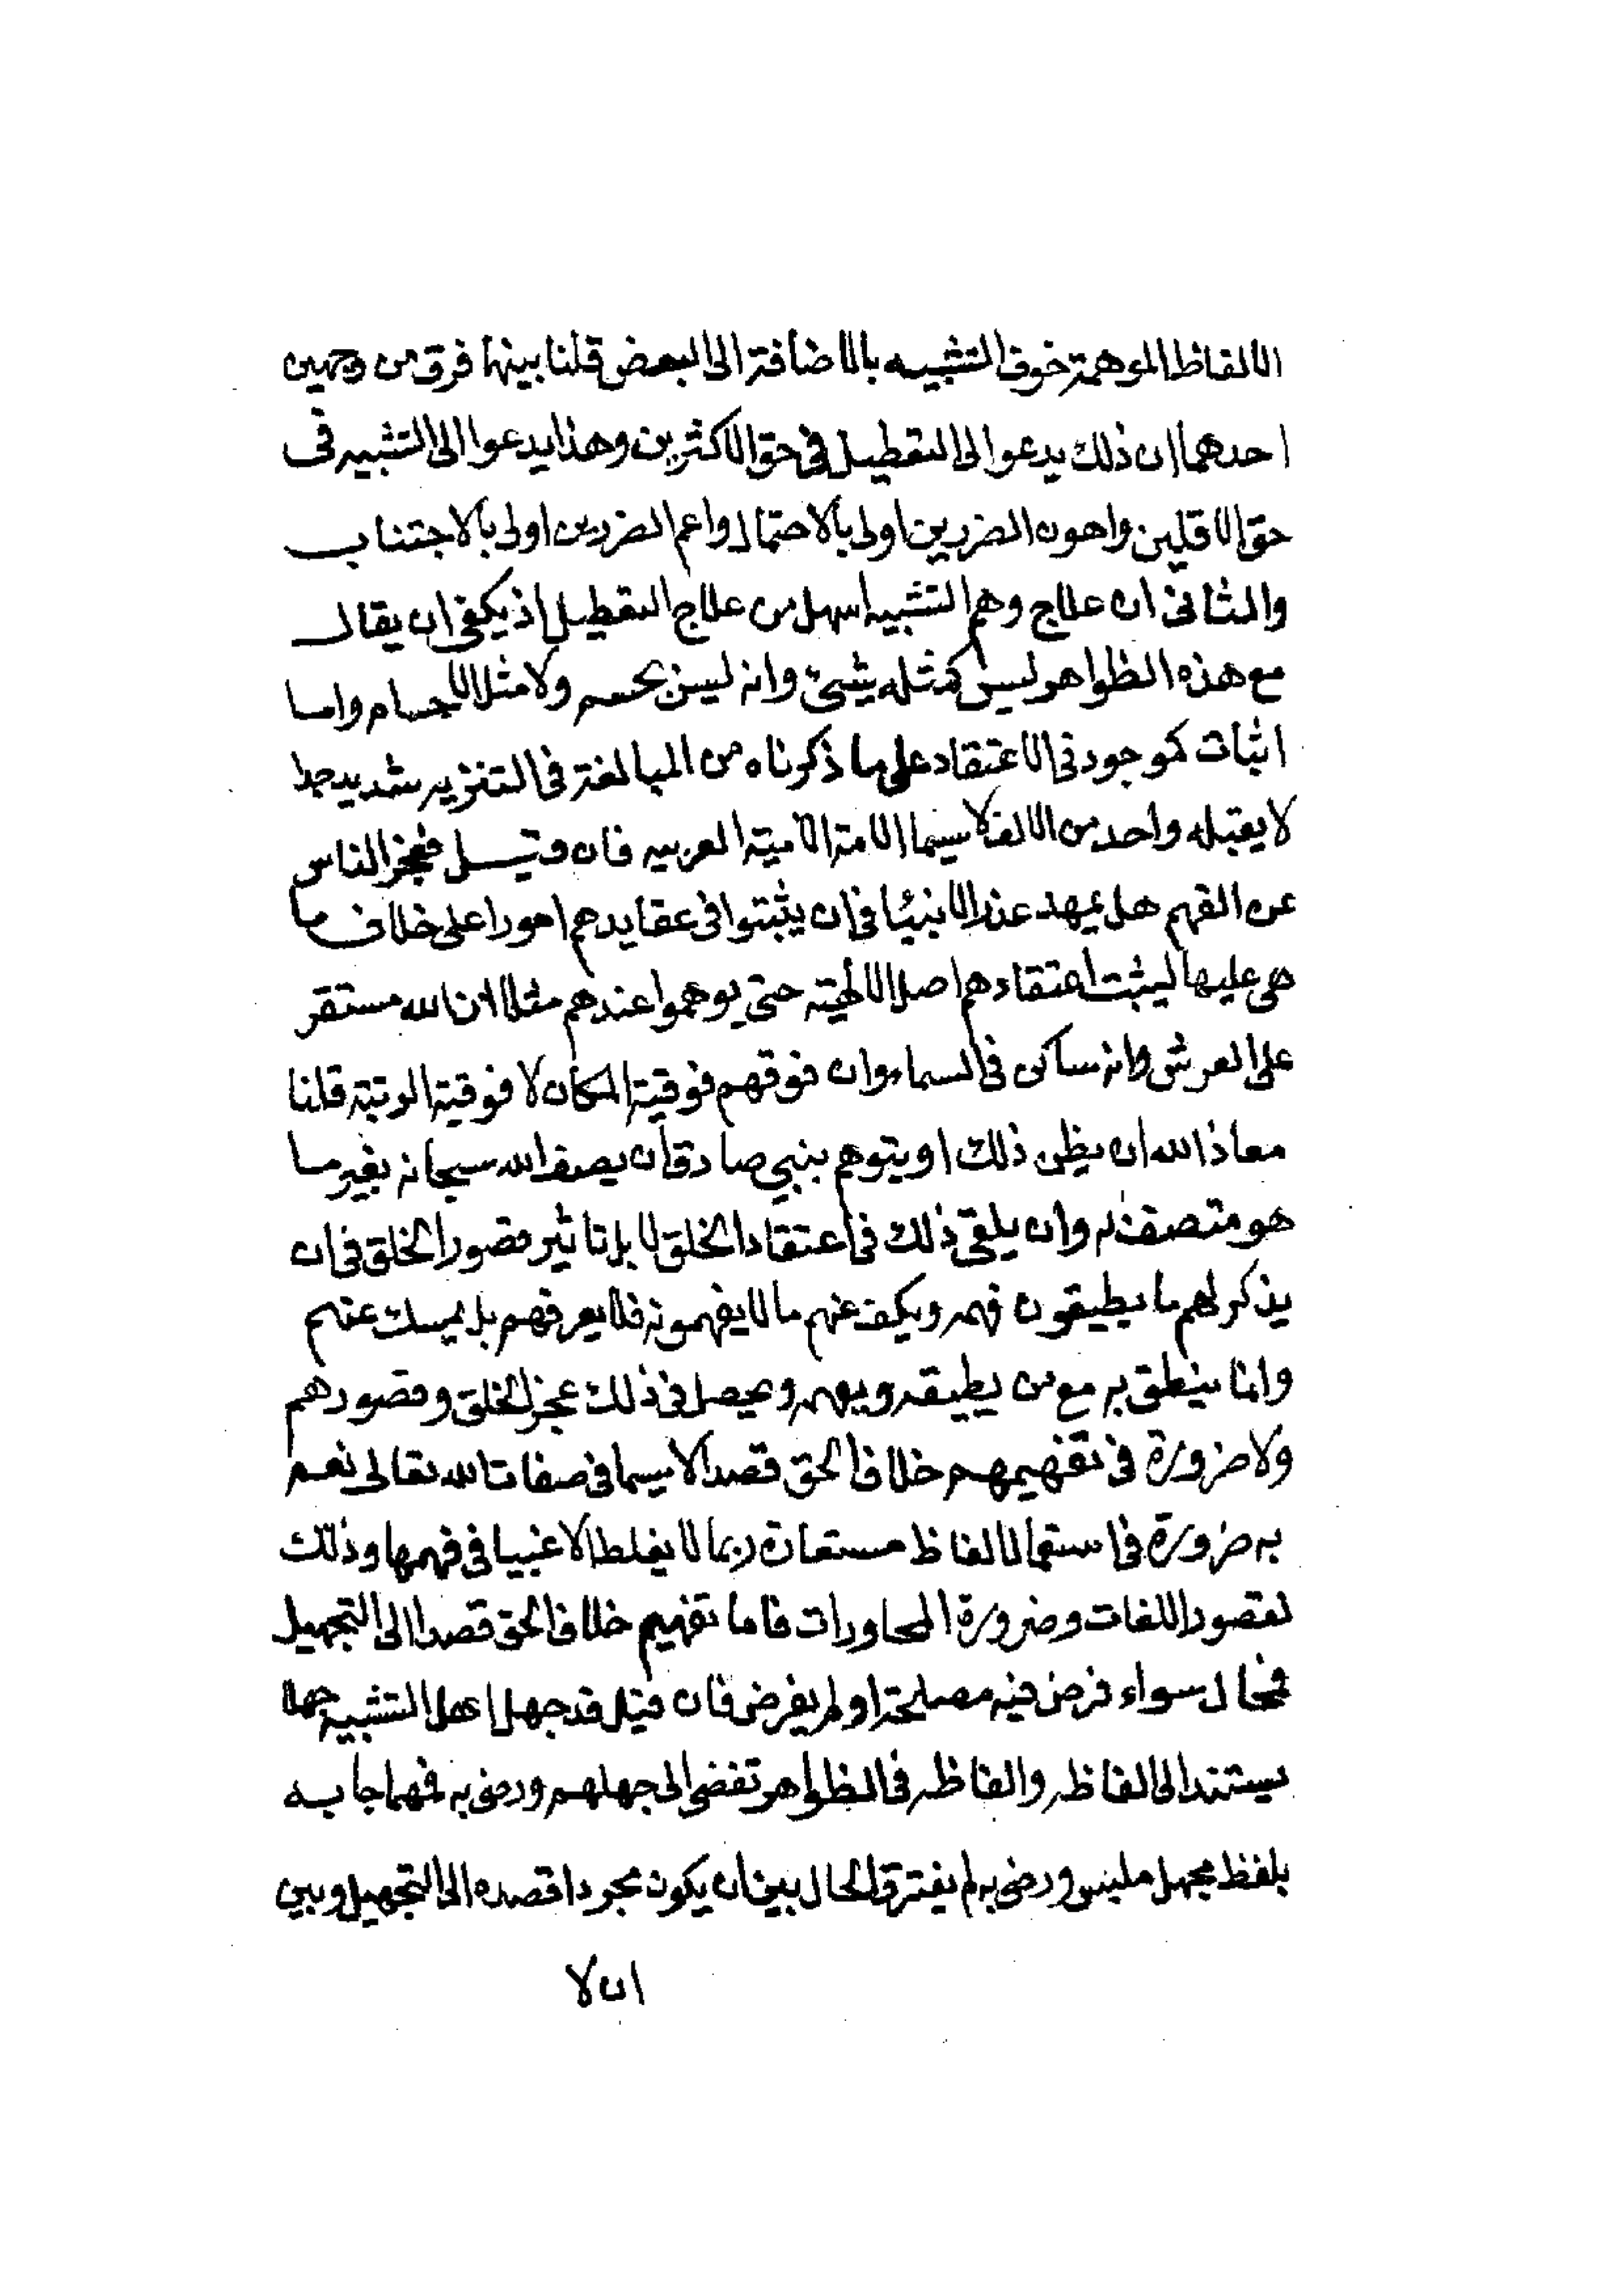 الالفاظ الموهمة خوف التشبيه بالاضافة الى البعض قلنا بينها فرق من وجهين
احدهما ان ذلك يدعوا الى التعطيل في حق الاكثرين وهذا يدعوا الى التشبيه في
حق الاقلين واهون الضررين اولى بالاحتمال واعم الضررين اولى بالاجتناب
والثاني ان علاج وهم التشبيه اسهل من علاج التعطيل اذ يكفي ان يقال
مع هذه الظواهر ليس كمثله شيئ وانه ليس بجسم ولا مثل الاجسام واما
اثبات كموجود في الاعتقاد على ما ذكرناه من المبالغة في التنزيه شديد جدا
لا يقبله واحد من الالف لا سيما الامة الامية العربيه فان قيل فعجز الناس
عن الفهم هل يمهد عذر الانبيا في ان يثبتوا في عقايدهم امورا على خلاف ما
هي عليها ليثبت اعتقادهم اصل الالهية حتى يوهموا عندهم مثلا ان الله مستقر
على العرش وانه ساكن في السماء وان فوقهم فوقية المكان لا فوقية الرتبة قلنا
معاذ الله ان يظن ذلك او يتوهم بنبي صادق ان يصف الله سبحانه بغير ما
هو متصف به وان يلقي ذلك في اعتقاد الخلق لا بل تاثير قصور الخلق في ان
يذكر لهم ما يطيقون فهمه ويكف عنهم ما لا يفهمونه فلا يعرفهم بل يمسك عنهم
وانما ينطق به مع من يطيقه ويفهمه ويحصل في ذلك عجز الخلق وقصورهم
ولا ضرورة في تفهيمهم خلاف الحق قصدا لا سيما في صفات الله تعالى نعم
به ضرورة في استعمال الفاظ مستعارة ربما لا يغلط الاغبيا في فهمها وذلك
لقصور اللغات وضرورة المحاورات فاما تفهيم خلاف الحق قصدا الى التجهيل
فمحال سواء فرض فيه مصلحة او لم يفرض فان قيل قد جهل اهل التشبيه جهلا
يستند الى الفاظه والفاظه في الظواهر تفضي الى جهلهم ورضي به فهما جا به
بلفظ مجهل ملبس ورضي به لم يفترق الحال بين ان يكون مجردا قصده الى التجهيل وبين
ان لا